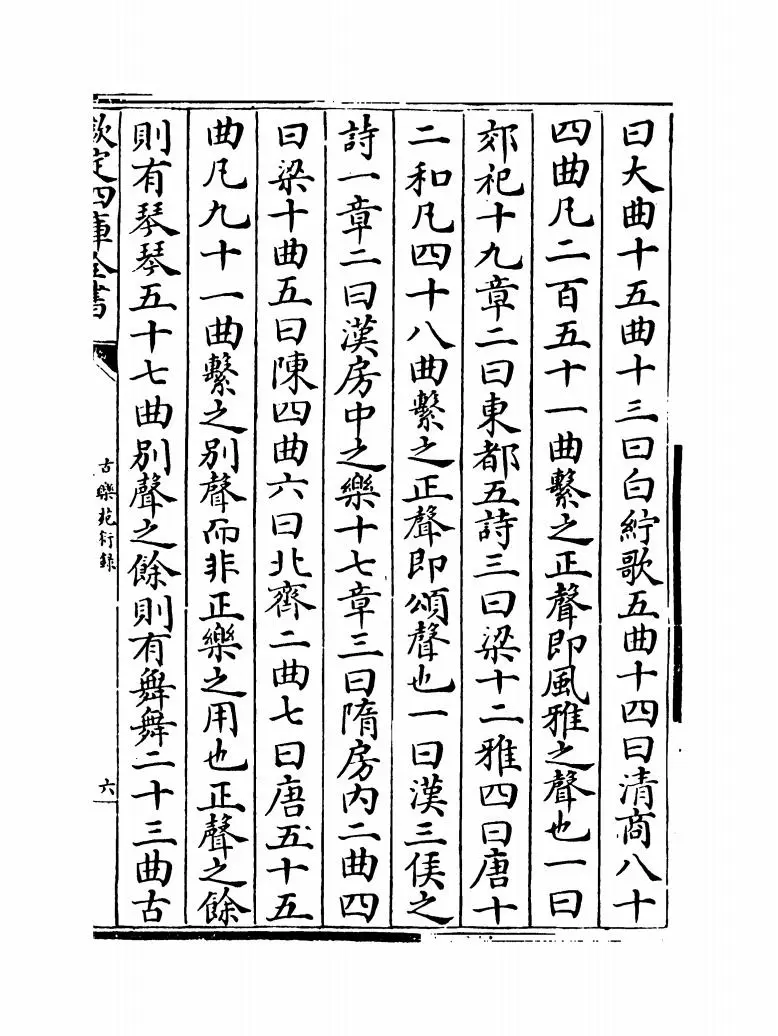 曰大曲十五曲十三曰白紵歌五曲十四曰清商八十
四曲凡二百五十一曲繫之正聲即風雅之聲也一曰
郊祀十九章二曰東都五詩三曰梁十二雅四曰唐十
二和凡四十八曲繫之正聲即頌聲也一曰漢三侯之
詩一章二曰漢房中之樂十七章三曰隋房内二曲四
曰梁十曲五曰陳四曲六曰北齊二曲七曰唐五十五
曲凡九十一曲繫之别聲而非正樂之用也正聲之餘
則有琴琴五十七曲别聲之餘則有舞舞二十三曲古
欽定四庫全書
古樂苑衍録
六